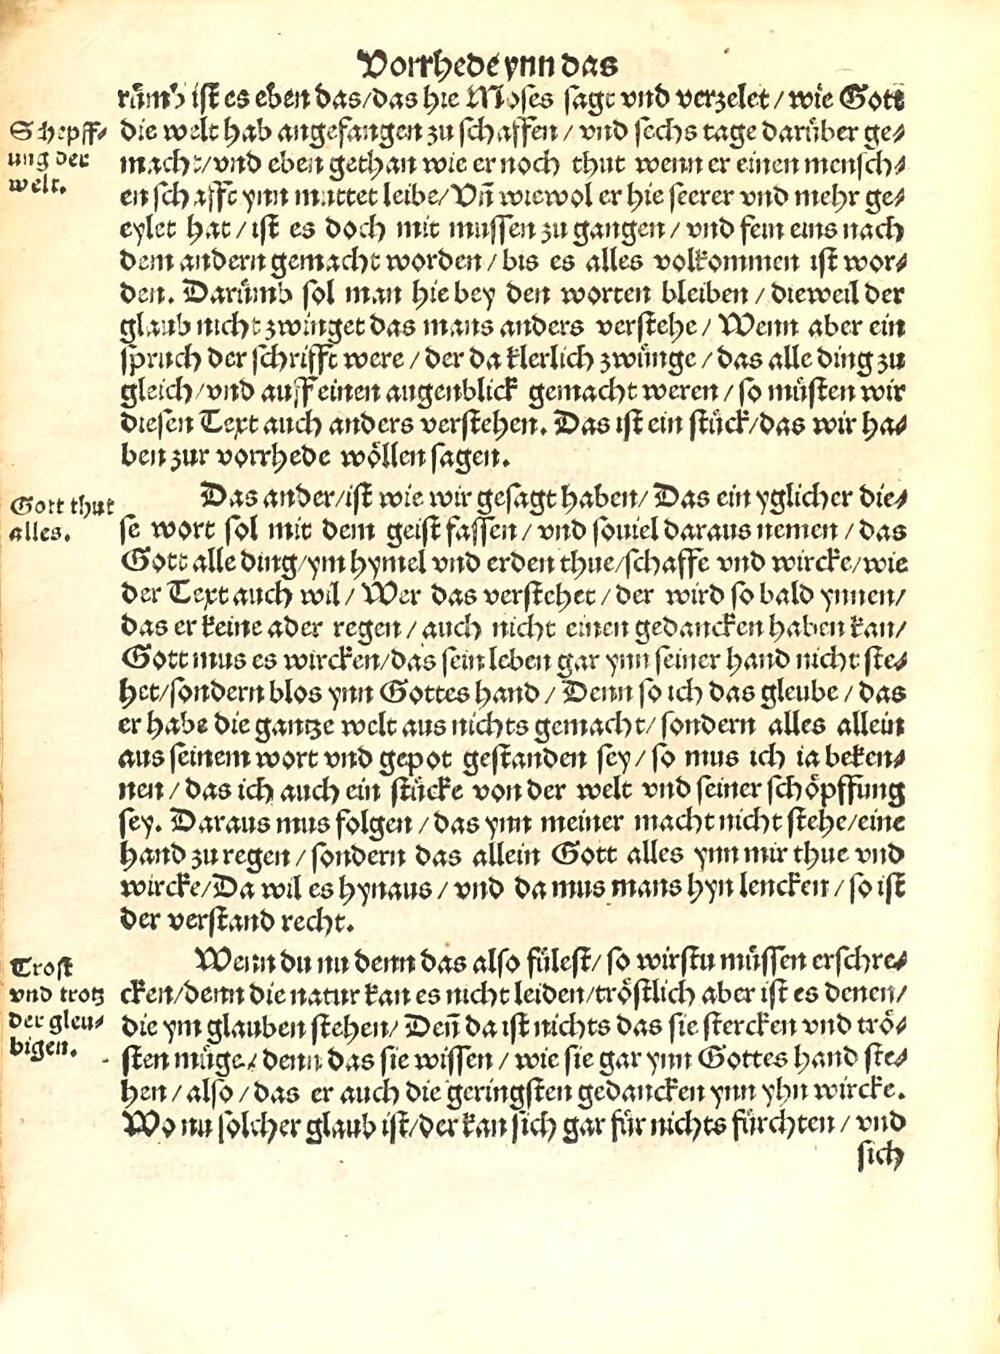 Vorrhede ynn das
rümb ist es eben das/das hie Moses sagt vnd verzelet/wie Gott
Schepff-
ung der
welt.
die welt hab angefangen zu schaffen/vnd sechs tage darüber ge-
macht/vnd eben gethan wie er noch thut wenn er einen mensch-
en schafft ynn mutter leibe/Vn̄ wiewol er hie seerer vnd mehr ge-
eylet hat/ist es doch mit mussen zu gangen/vnd fein eins nach
dem andern gemacht worden/bis es alles volkommen ist wor-
den. Darümb sol man hie bey den worten bleiben/dieweil der
glaub nicht zwinget das mans anders verstehe/Wenn aber ein
spruch der schrifft were/der da klerlich zwünge/das alle ding zu
gleich/vnd auff einen augenblick gemacht weren/so müsten wir
diesen Text auch anders verstehen. Das ist ein stück/das wir ha-
ben zur vorrhede wöllen sagen.
Gott thut
alles.
Das ander/ist wie wir gesagt haben/Das ein yglicher die-
se wort sol mit dem geist fassen/vnd souiel daraus nemen/das
Gott alle ding/ym hymel vnd erden thue/schaffe vnd wircke/wie
der Text auch wil/Wer das verstehet/der wird so bald ynnen/
das er keine ader regen/auch nicht einen gedancken haben kan/
Gott mus es wircken/das sein leben gar ynn seiner hand nicht ste-
het/sondern blos ynn Gottes hand/Denn so ich das gleube/das
er habe die gantze welt aus nichts gemacht/sondern alles allein
aus seinem wort vnd gepot gestanden sey/so mus ich ia beken-
nen/das ich auch ein stücke von der welt vnd seiner schöpffung
sey. Daraus mus folgen/das ynn meiner macht nicht stehe/eine
hand zu regen/sondern das allein Gott alles ynn mir thue vnd
wircke/Da wil es hynaus/vnd da mus mans hyn lencken/so ist
der verstand recht.
Trost
vnd trotz
der gleu-
bigen.
Wenn du nu denn das also fülest/so wirstu müssen erschre-
cken/denn die natur kan es nicht leiden/tröstlich aber ist es denen/
die ym glauben stehen/Den̄ da ist nichts das sie stercken vnd trö-
sten müge/denn das sie wissen/wie sie gar ynn Gottes hand ste-
hen/also/das er auch die geringsten gedancken ynn yhn wircke.
Wo nu solcher glaub ist/der kan sich gar für nichts fürchten/vnd
sich